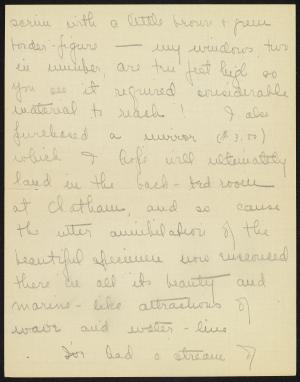 scrim with a little brown & green
border-figure — my windows, two
in number, are ten feet high so
you see it required considerable
material to reach! I also
purchased a mirror ($3.00)
which I hope will ultimately
land in the back-bed room
at Chatham, and so cause
the utter annihilation of the
beautiful specimen now ensconced
there in all its beauty and
marine-like attractions of
wave and water-line
I've had a stream of